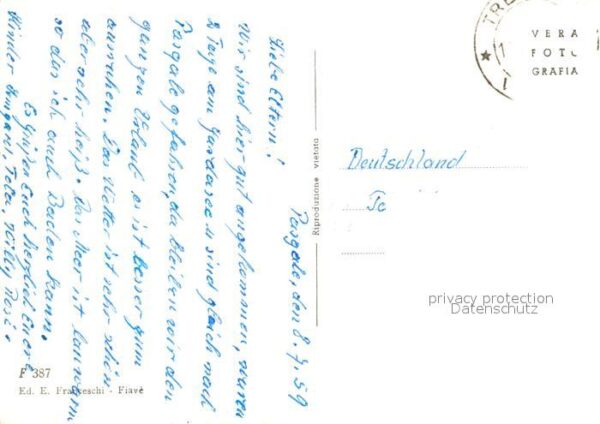 Pasgale, den 8.7.59
Liebe Eltern!
Wir sind hier gut angekommen, waren
2 Tage am Gardasee u sind gleich nach
Pasgale gefahren, da bleiben wir den
ganzen Urlaub es ist besser zum
ausruhen. Das Wetter ist sehr schön
aber sehr heiß. Das Meer ist lauwarm
so das ich auch Baden kann.
Es grüßen Euch herzlich Eure
Kinder Irmgard, Willy, Rosl.
F 387
Ed. E. Franceschi - Fiavè
Riproduzione vietata
TRE
VERA
FOTO
GRAFIA
Deutschland
Te
privacy protection
Datenschutz